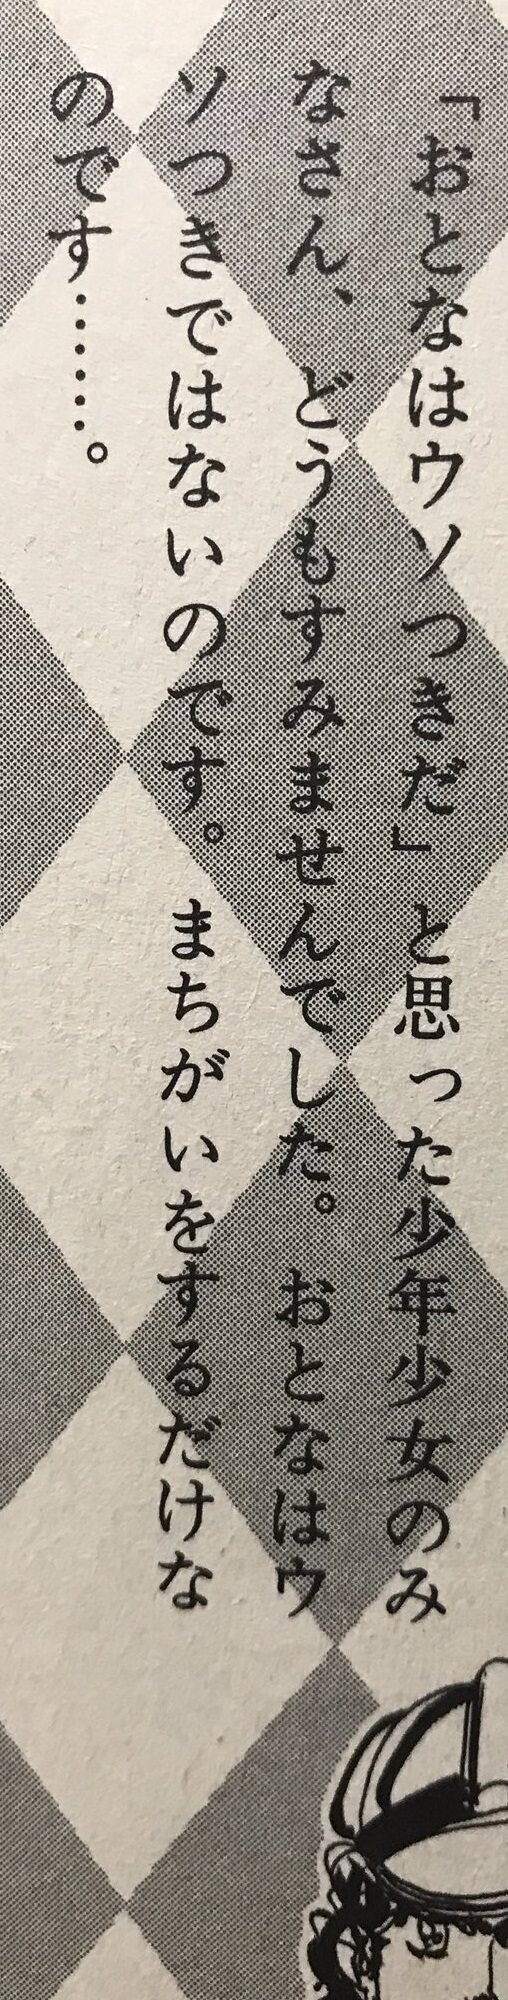 「おとなはウソつきだ」と思った少年少女のみ
なさん、どうもすみませんでした。おとなはウ
ソつきではないのです。まちがいをするだけな
のです……。